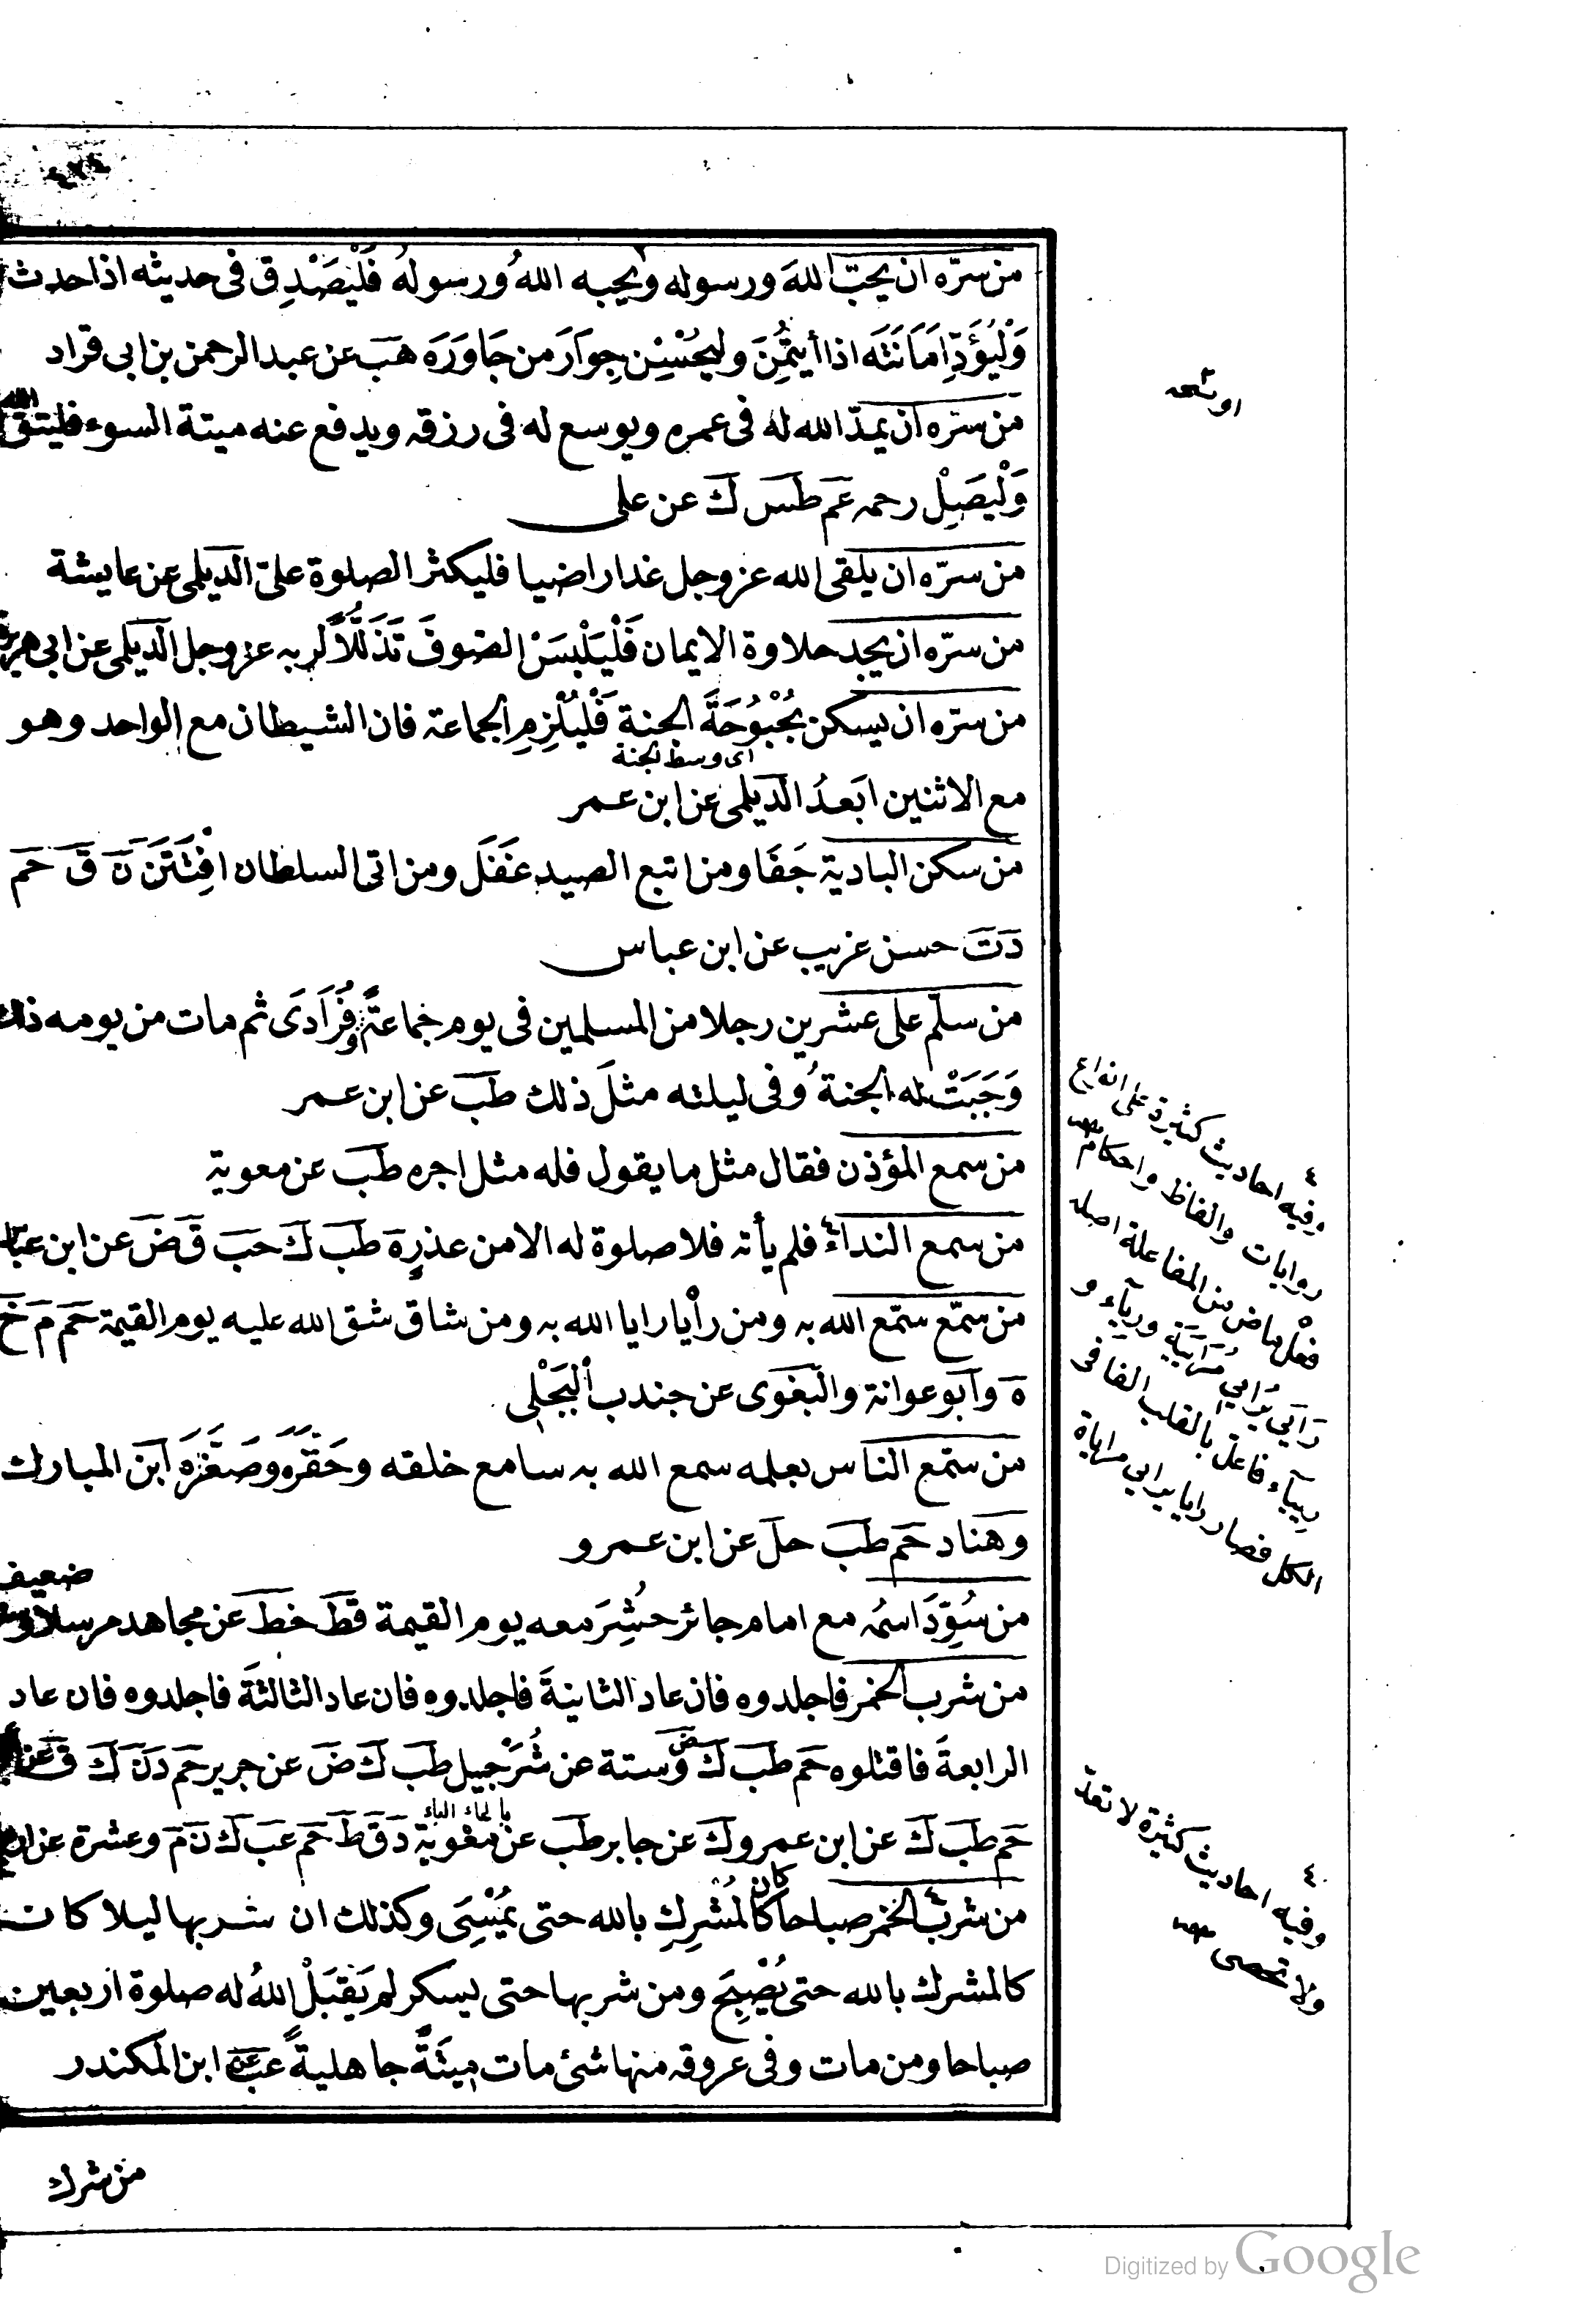 من سرّه ان يحبّ اللهَ ورسوله ويحبه اللهُ ورسولهُ فَلْيَصْدِق فى حديثه اذا حدث
وَلْيُؤَدِّ اَمَانَتَه اذا أيتُمِنَ وليُحْسِن جِوَارَ من جَاوَرَه هَبَ عن عبد الرحمن بن ابى قراد
من سرّه ان يمدّ الله له فى عمره ويوسع له فى رزقه ويدفع عنه ميتة السوء فليتق الله
وَلْيَصِلْ رحمه عَم طَس كَ عن على
من سرّه ان يلقى الله عز وجل غدا راضيا فليكثر الصلوة علىّ الديلمى عن عايشة
من سرّه ان يجد حلاوة الايمان فَلْيَلْبَسْ الصوفَ تَذَلُّلًا لربه عز وجل الديلمى عن ابى هريرة
من سرّه ان يسكن بُحْبُوُحَةَ الجنة فَلْيُلْزِمِ الجماعة فان الشيطان مع الواحد وهو
اى وسط الجنة
مع الاثنين ابَعدُ الديلمى عن ابن عمر
من سكن البادية جَفَا ومن اتبع الصيد غَفَلَ ومن اتى السلطان افْتُتَنَ نَ قَ حَم
دَتَ حسن غريب عن ابن عباس
من سلّم على عشرين رجلا من المسلمين فى يوم جماعةً وفُرَادَى ثم مات من يومه ذلك
وَجَبَتْ له الجنةُ وفى ليلته مثلَ ذلك طَبَ عن ابن عمر
من سمع المؤذن فقال مثل ما يقول فله مثل اجره طَبَ عن معوية
من سمع النداءَ فلم يأته فلا صلوة له الا من عذرٍ ه طَب كَ حَبَ قَ ضَ عن ابن عبّاس
من سمّع سمّع الله به ومن رأيا رايا الله به ومن شاق شق الله عليه يوم القيمة حَم مَ خَ
ه وابو عوانة والبغوى عن جندب البَجَلى
من سمّع الناس بعلمه سمع الله به سامع خلقه وحَقَّرَه وصَغَّرَه ابن المبارك
وهناد حَم طَبَ حل عن ابن عمرو
ضعيف
من سُوِّدَ اسمُه مع امام جائر حشِرَ معه يوم القيمة قَطَ خطَ عن مجاهد مرسلا
من شرب الخمر فاجلدوه فان عاد الثانيةَ فاجلدوه فان عاد الثالثةَ فاجلدوه فان عاد
الرابعةَ فاقتلوه حَم طَب كَ ضَ وستة عن شُرَحْبيل طَب كَ ضَ عن جرير حَم دَنَ كَ قَ عن
حَم طَبَ كَ عن ابن عمرو كَ عن جابر طَب عن معوية دَ قَ طَ حَم عَب كَ نَ مَ وعشرة عن
من شرب الخمر صباحا كان كالمُشْرِكِ بالله حتى يُمْسِىَ وكذلك ان شربها ليلا كان
كالمشرك بالله حتى يُصْبِحَ ومن شربها حتى يسكر لم يَقبَلْ اللهُ له صلوة اربعين
صباحا ومن مات وفى عروقه منها شئ مات مِيتَةً جاهليةً عَبَ عن ابن المنكدر
من شرك
٤ وفيه احاديث كثيرة على انواع
روايات والفاظ واحكام
فعل ماض من المفاعلة اصله
الكل فصار رايا يرايى مراياة
٤ وفيه احاديث كثيرة لا تعد
ولا تحصى
Digitized by Google